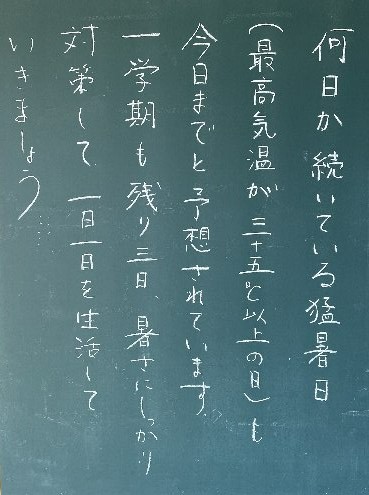 何日か続いている猛暑日
(最高気温が三十五℃以上の日)も
今日までと予想されています
一学期も残り三日、暑さにしっかり
対策して一日一日を生活して
いきましょう…